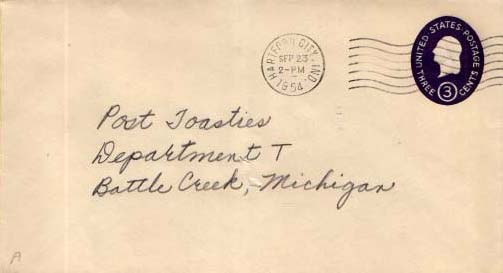 HARTFORD CITY, IND.
SEP 23
2-PM
1954
UNITED STATES POSTAGE
THREE 3 CENTS
Post Toasties
Department T
Battle Creek, Michigan
A